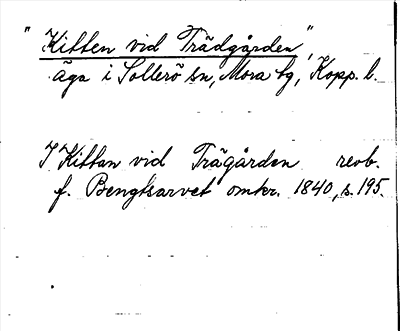 "Kitten vid Trädgården",
äga i Sollerö sn, Mora tg, Kopp. l.
I Kittan vid Trägården reob.
f. Bengtsarvet omkr. 1840, s. 195.